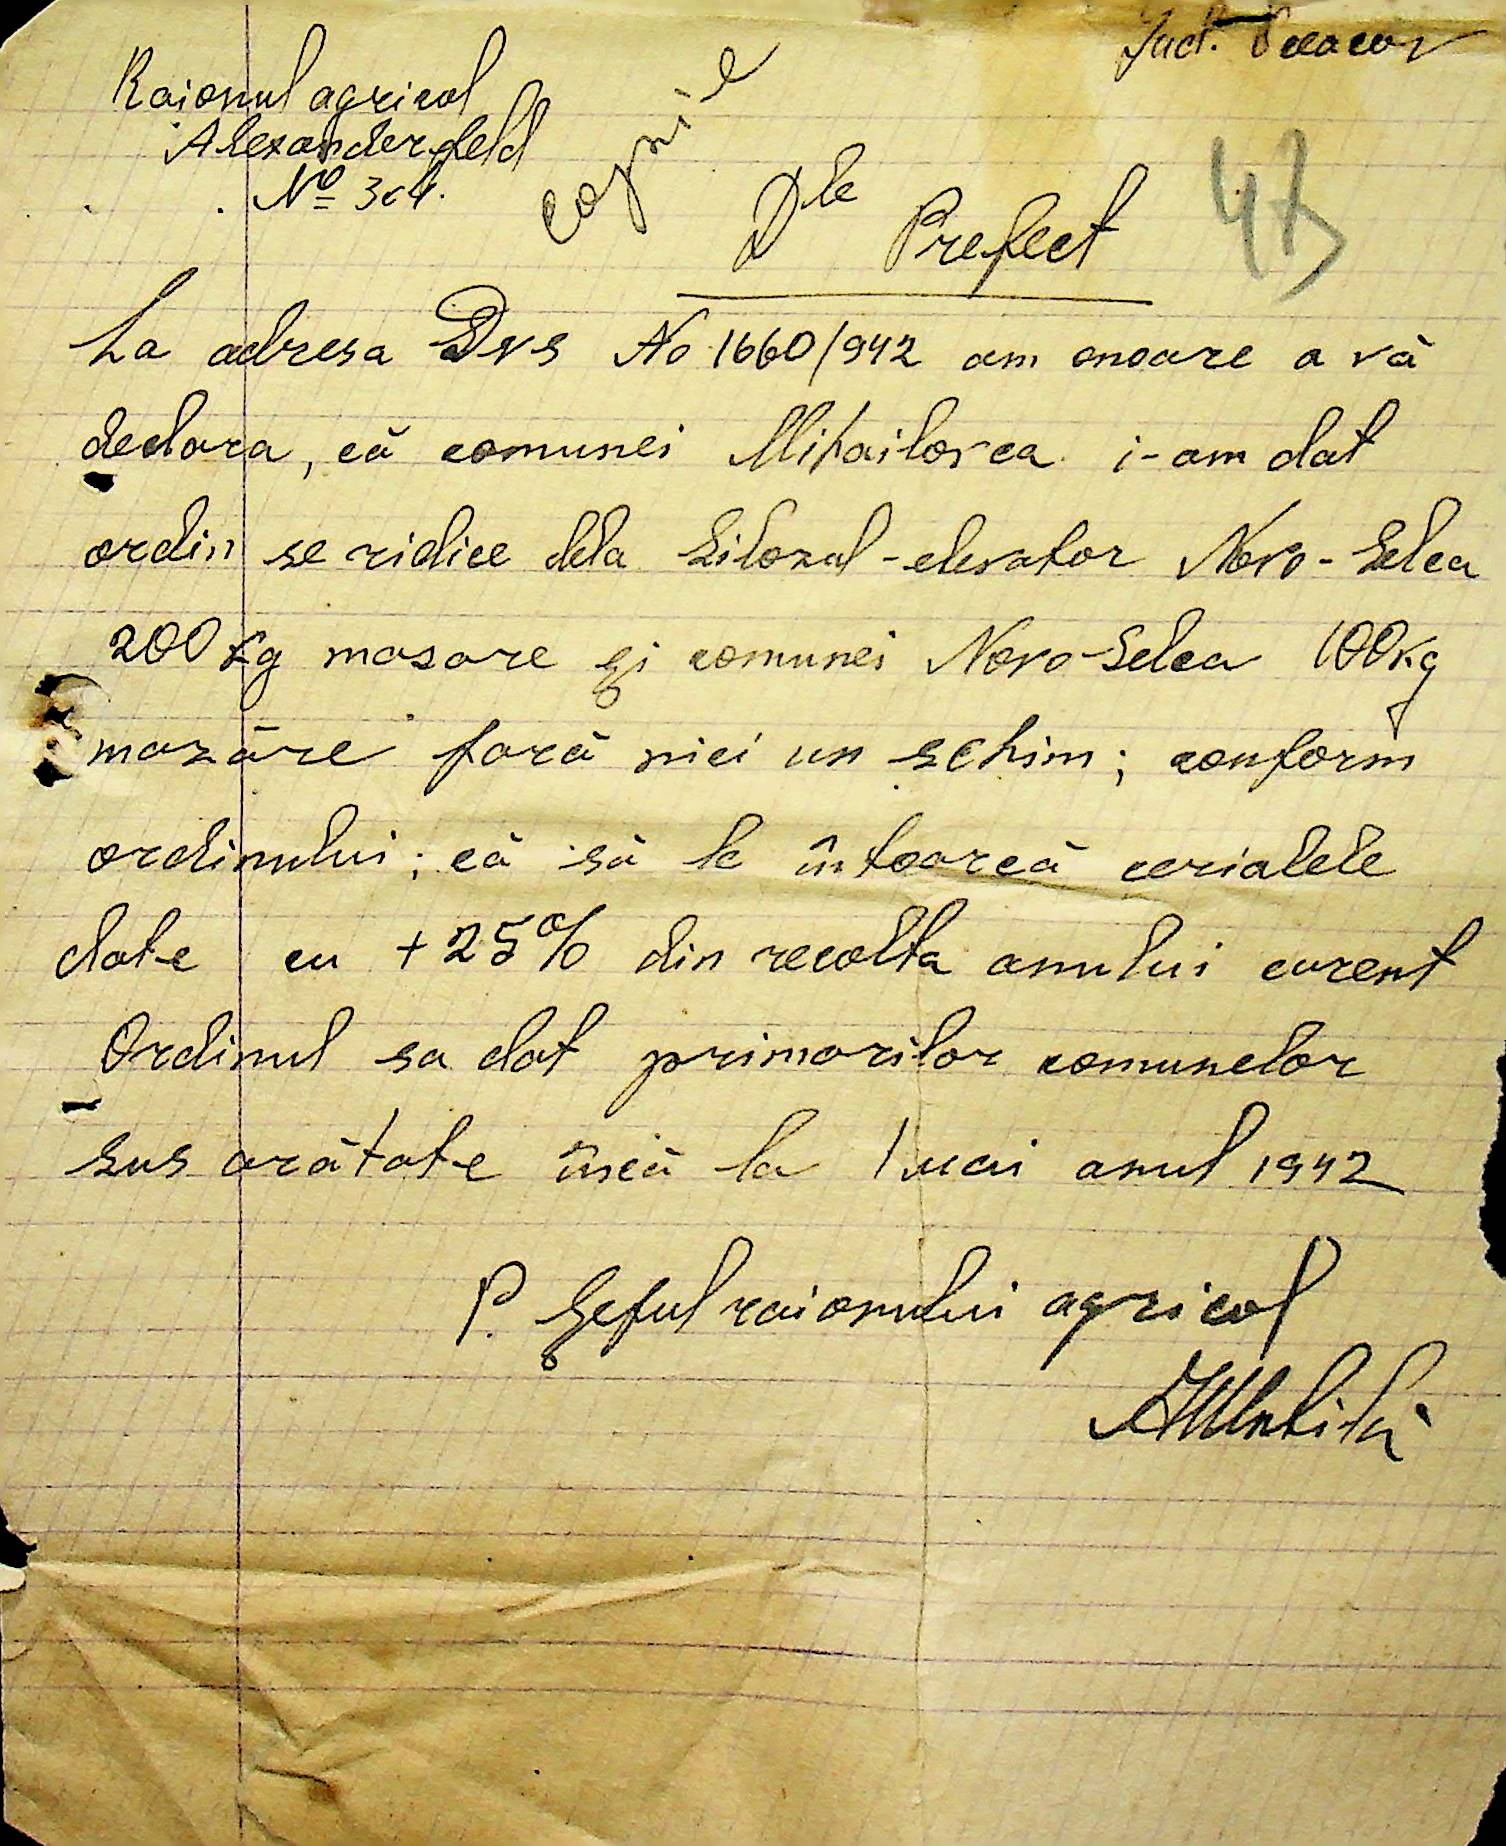 Raionul agricol
Alexanderfeld
No 304.
copie
47
Dle Prefect
La adresa Dvs No 1660/942 am onoare a vă
declara, că comunei Mihailovca i-am dat
ordin se ridice dela Silozul-elevator Novo-Selca
200 kg mazare și comunei Novo-Selca 100 kg
mazăre fară nici un schim; conform
ordinului; că să le întoarcă cerialele
date cu +25% din recolta anului curent
Ordinul sa dat primarilor comunelor
sus arătate încă la 1 mai anul 1942
P. Șeful raionului agricol